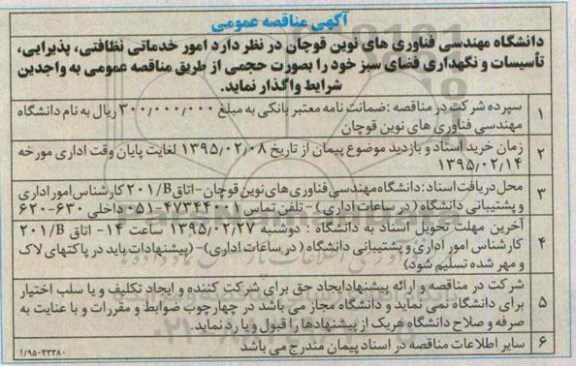 آگهی مناقصه عمومی
دانشگاه مهندسی فناوری های نوین قوچان در نظر دارد امور خدماتی نظافتی، پذیرایی،
تأسیسات و نگهداری فضای سبز خود را بصورت حجمی از طریق مناقصه عمومی به واجدین
شرایط واگذار نماید.
۱ سپرده شرکت در مناقصه: ضمانت نامه معتبر بانکی به مبلغ ۳۰۰٫۰۰۰٫۰۰۰ ریال به نام دانشگاه
مهندسی فناوری های نوین قوچان
۲ زمان خرید اسناد و بازدید موضوع پیمان از تاریخ ۱۳۹۵/۰۲/۰۸ لغایت پایان وقت اداری مورخه
۱۳۹۵/۰۲/۱۴
۳ محل دریافت اسناد: دانشگاه مهندسی فناوری های نوین قوچان - اتاق ۲۰۱/B کارشناس امور اداری
و پشتیبانی دانشگاه (در ساعات اداری) - تلفن تماس ۴۷۳۴۴۰۰۱-۰۵۱ داخلی ۶۳۰-۶۲۰
۴ آخرین مهلت تحویل اسناد به دانشگاه : دوشنبه ۱۳۹۵/۰۲/۲۷ ساعت ۱۴- اتاق ۲۰۱/B
کارشناس امور اداری و پشتیبانی دانشگاه (در ساعات اداری)- (پیشنهادات باید در پاکتهای لاک
و مهر شده تسلیم شود)
۵ شرکت در مناقصه و ارائه پیشنهاد ایجاد حق برای شرکت کننده و ایجاد تکلیف و یا سلب اختیار
برای دانشگاه نمی نماید و دانشگاه مجاز می باشد در چهارچوب ضوابط و مقررات و با عنایت به
صرفه و صلاح دانشگاه هریک از پیشنهادها را قبول و یا رد نماید.
۶ سایر اطلاعات مناقصه در اسناد پیمان مندرج می باشد
۱/۹۵۰۲۳۳۸۰